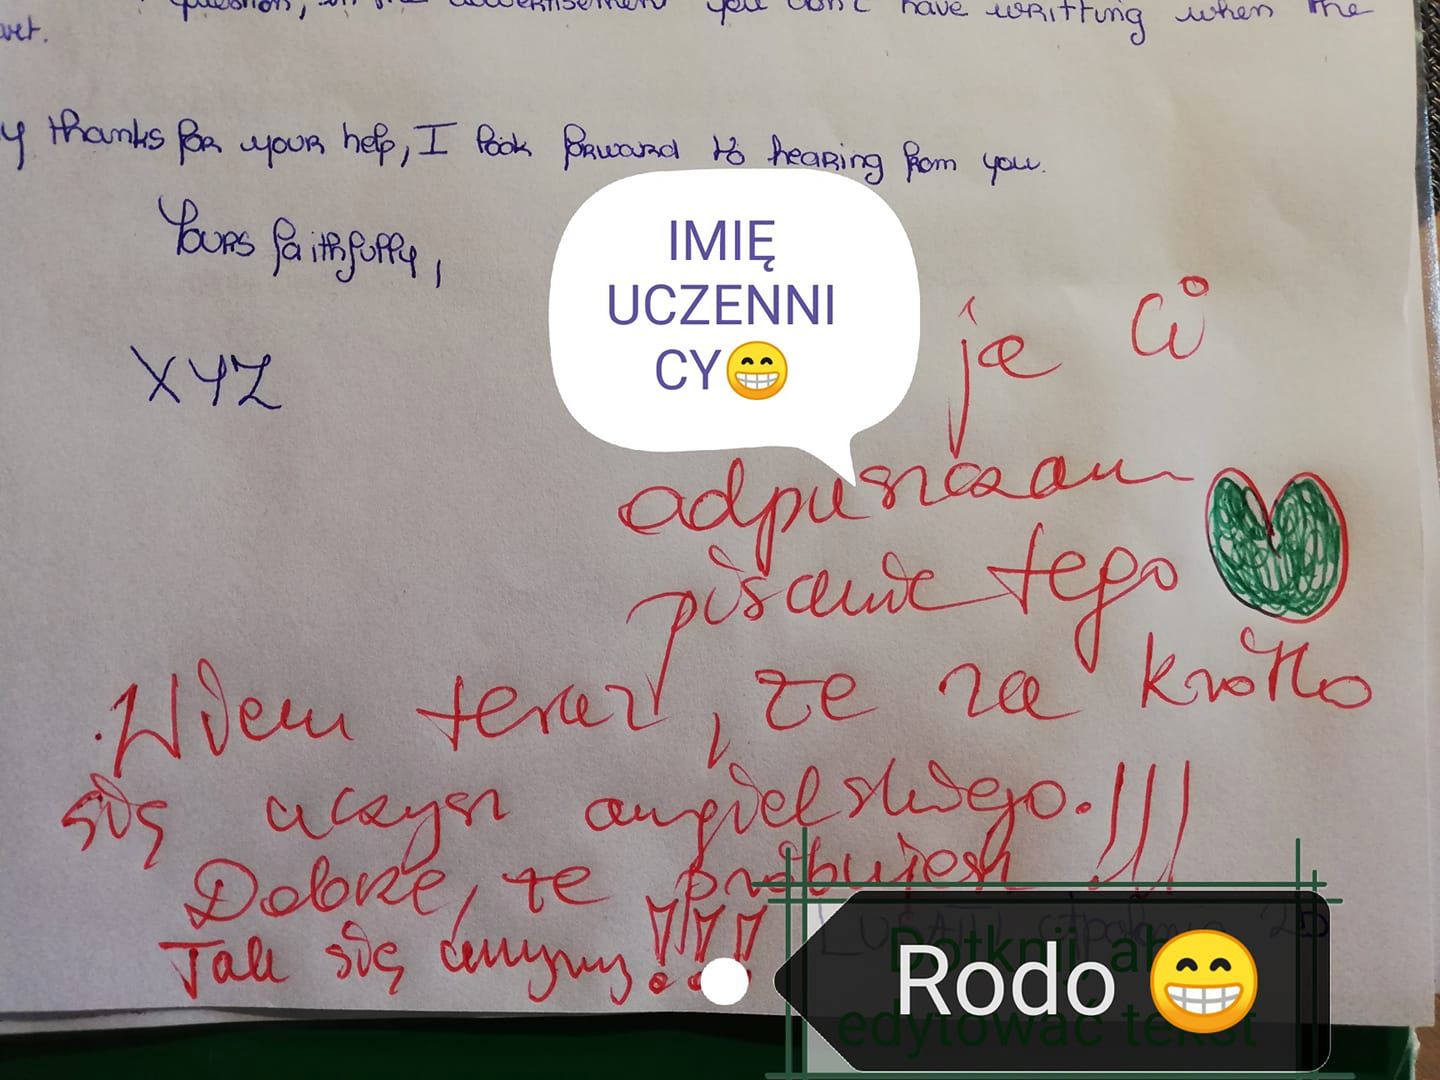 question, in the advertisement you don't have writting when the
thanks for your help, I look forward to hearing from you.
Yours faithfully,
XYZ
IMIĘ
UCZENNI
CY😁
ja Ci
odpuszczam
pisanie tego
Wiem teraz, że za krótko
się uczysz angielskiego.!!!
Dobrze, że próbujesz !!!
Tak się uczymy!!!
Rodo 😁
Dotknij, aby
edytować tekst